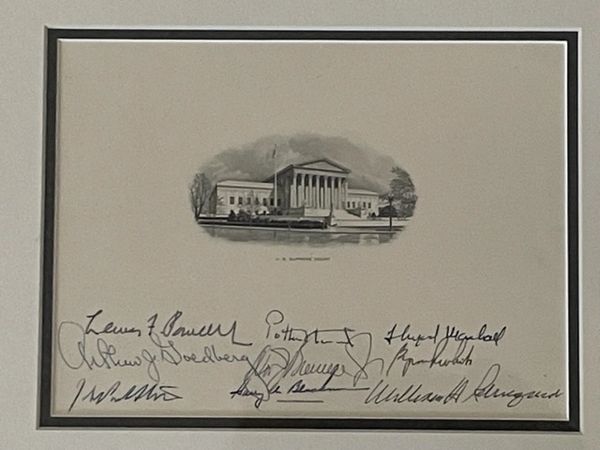 U. S. SUPREME COURT
Lewis F. Powell Potter Stewart Thurgood Marshall
Arthur J. Goldberg Wm J. Brennan Jr Byron White
Harry A. Blackmun William H. Rehnquist